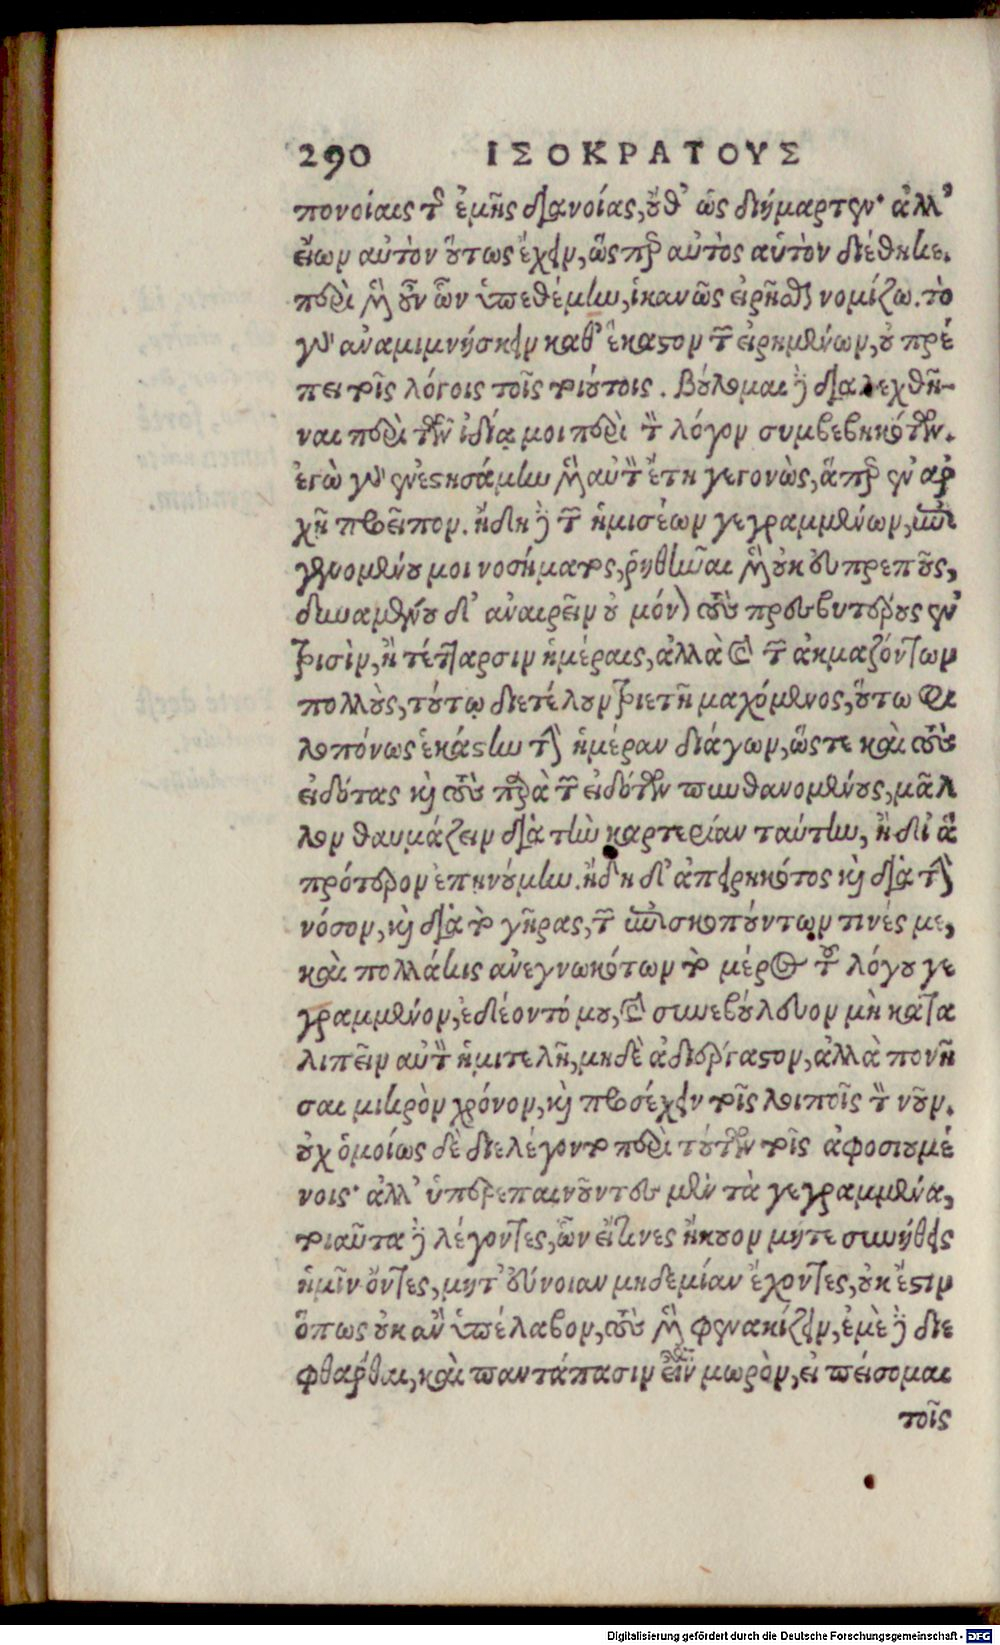 290 ΙΣΟΚΡΑΤΟΥΣ
πονοίαις τῆς ἐμῆς διανοίας, οὔθ' ὡς διήμαρτεν· ἀλλ'
εἴων αὐτὸν οὕτως ἔχειν, ὥσπερ αὐτὸς αὑτὸν διέθηκε.
περὶ μὲν οὖν ὧν ὑπεθέμην, ἱκανῶς εἰρῆσθαι νομίζω. τὸ
γὰρ ἀναμιμνήσκειν καθ' ἕκαστον τῶν εἰρημένων, οὐ πρέ
πει τοῖς λόγοις τοῖς τοιούτοις. Βούλομαι δὲ διαλεχθῆ-
ναι περὶ τῶν ἰδίᾳ μοι περὶ τὸν λόγον συμβεβηκότων.
ἐγὼ γὰρ ἐνεστησάμην μὲν αὐτὸν ἔτη γεγονὼς, ἅπερ ἐν ἀρ
χῇ προεῖπον. ἤδη δὲ τῶν ἡμισέων γεγραμμένων, ἐπι
γενομένου μοι νοσήματος, ῥηθῆναι μὲν οὐκ εὐπρεποῦς,
δυναμένου δ' ἀναιρεῖν οὐ μόνον τοὺς πρεσβυτέρους ἐν
τρισὶν, ἢ τέτταρσιν ἡμέραις, ἀλλὰ καὶ τῶν ἀκμαζόντων
πολλοὺς, τούτῳ διετέλουν τριετῆ μαχόμενος, οὕτω φι
λοπόνως ἑκάστην τὴν ἡμέραν διάγων, ὥστε καὶ τοὺς
εἰδότας καὶ τοὺς παρὰ τῶν εἰδότων πυνθανομένους, μᾶλ
λον θαυμάζειν διὰ τὴν καρτερίαν ταύτην, ἢ δι' ἃ
πρότερον ἐπῃνούμην. ἤδη δ' ἀπειρηκότος καὶ διὰ τὴν
νόσον, καὶ διὰ τὸ γῆρας, τῶν ἐπισκοπούντων τινές με,
καὶ πολλάκις ἀνεγνωκότων τὸ μέρος τοῦ λόγου γε
γραμμένον, ἐδέοντό μου, καὶ συνεβούλευον μὴ κατα
λιπεῖν αὐτὸν ἡμιτελῆ, μηδὲ ἀδιέργαστον, ἀλλὰ πονῆ
σαι μικρὸν χρόνον, καὶ προσέχειν τοῖς λοιποῖς τὸν νοῦν.
οὐχ ὁμοίως δὲ διελέγοντο περὶ τούτων τοῖς ἀφοσιουμέ
νοις· ἀλλ' ὑπερεπαινοῦντες μὲν τὰ γεγραμμένα,
τοιαῦτα δὲ λέγοντες, ὧν εἴ τινες ἤκουον μήτε συνήθεις
ἡμῖν ὄντες, μήτ' εὔνοιαν μηδεμίαν ἔχοντες, οὐκ ἔστιν
ὅπως οὐκ ἂν ὑπέλαβον, τοὺς μὲν φενακίζειν, ἐμὲ δὲ διε
φθάρθαι, καὶ παντάπασιν εἶναι μωρὸν, εἰ πείσομαι
τοῖς
Digitalisierung gefördert durch die Deutsche Forschungsgemeinschaft - DFG